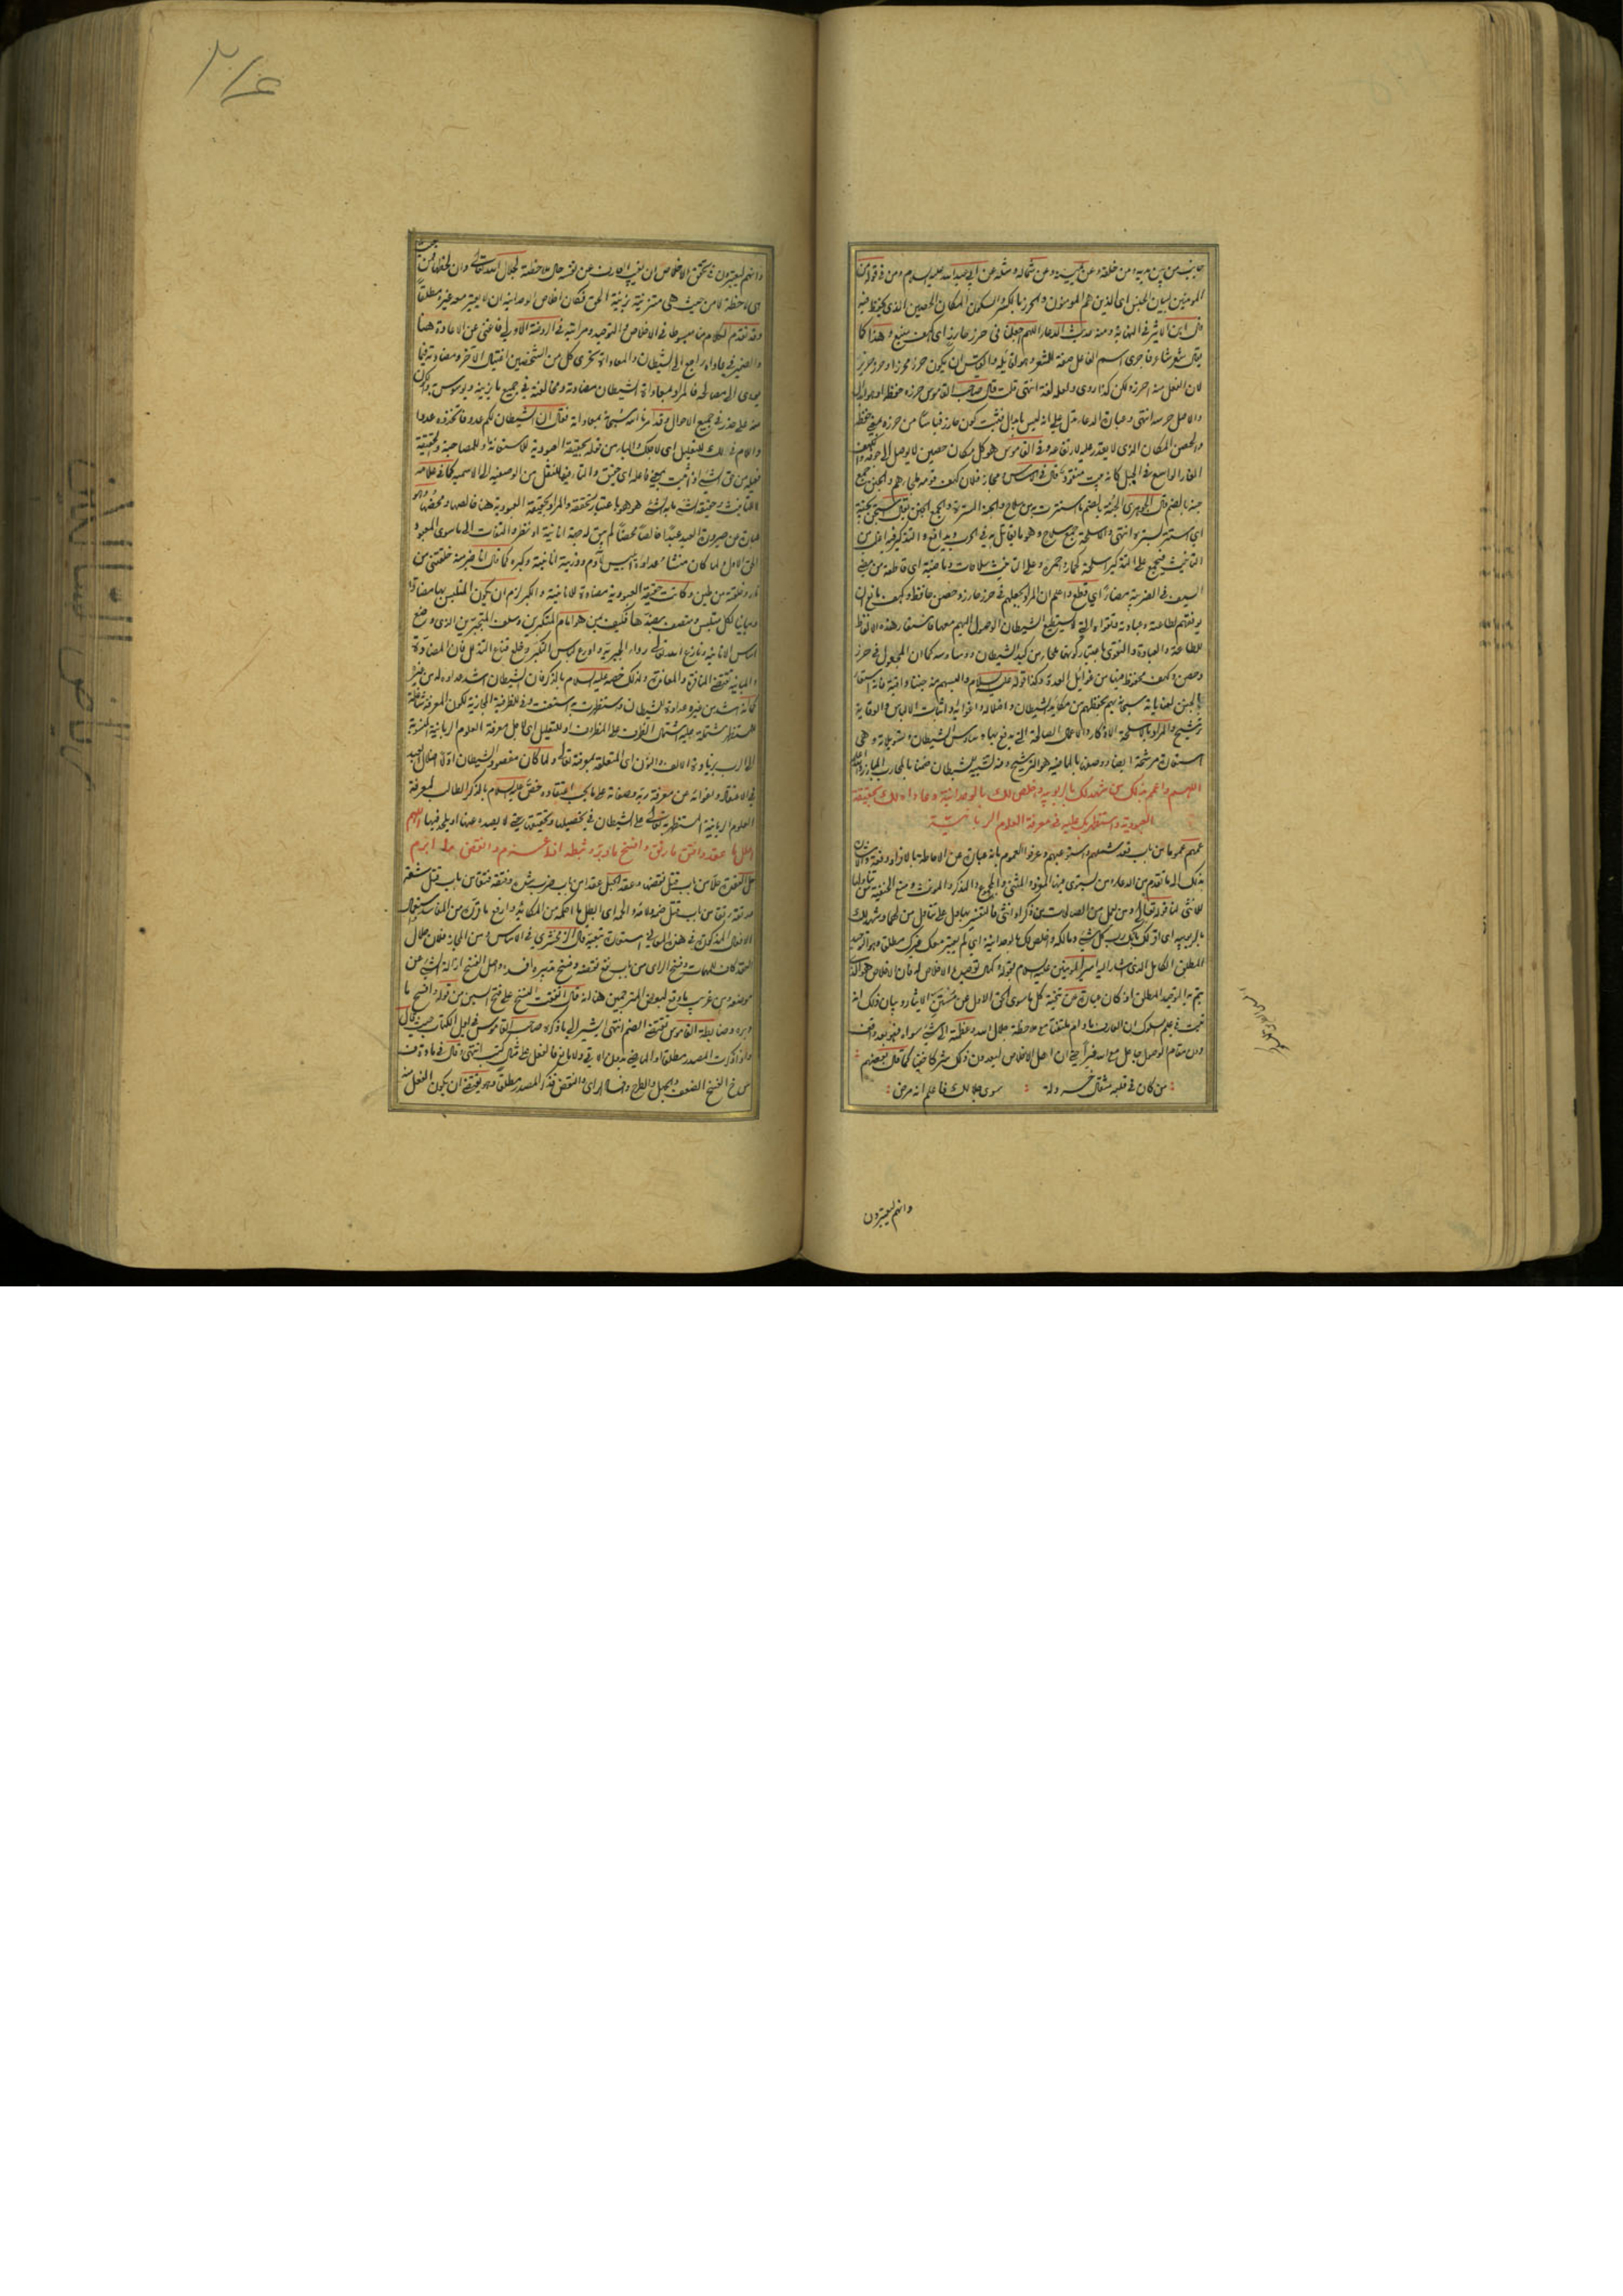 جانب من بين يديه ومن خلفه وعن يمينه وعن شماله ومثله عن ابي عبد الله عليه السلام ومن في قوله من
المؤمنين لبيان الجنس اي الذين هم المؤمنون والحرز بالكسر والسكون المكان الحصين الذي يحفظ فيه
قال ابن الاثير في النهاية ومنه حديث الدعاء اللهم اجعلنا في حرز حارز اي كهف منيع وهذا كما
يقال شعر شاعر فاجرى اسم الفاعل صفة للشعر وهو لقائله والقياس ان يكون حرز محرز او حرز حريز
لان الفعل منه احرز ولكن كذا روى ولعله لغة انتهى قلت قال صاحب القاموس حرزه حفظه او هو ابدال
والاصل حرسه انتهى وعبارة الدعاء تدل على انه ليس بابدال فثبت كون حارز قياسا من حرزه بمعنى حفظه
والحصن المكان الذي لا يقدر عليه لارتفاعه وفي القاموس هو كل مكان حصين لا يوصل الى جوفه والكهف
الغار الواسع في الجبل كالبيت منقور قال في الاساس ومن المجاز فلان كهف قومه ملجاؤهم والجنن جمع
جنة بالضم قال الجوهري الجنة بالضم ما استترت به من سلاح والجنة السترة والجمع الجنن يقال استجن بجنة
اي استتر بسترة انتهى والاسلحة جمع سلاح وهو ما يقاتل به في الحرب ويدافع والتذكير فيه اغلب من
التانيث فيجمع على التذكير اسلحة كحمار واحمرة وعلى التانيث سلاحات وماضية اي قاطعة من مضى
السيف في الضريبة مضاء اي قطع واعلم ان المراد بجعلهم في حرز حارز وحصن حافظ وكهف مانع ان
يوفقهم لطاعته وعبادته وتقواه والي لا يستطيع الشيطان الوصول اليهم معها فاستعار هذه الالفاظ
للطاعة والعبادة والتقوى باعتبار كونها ملجا من كيد الشيطان ووساوسه كما ان المجعول في حرز
وحصن وكهف محفوظ فيها من غوائل العدو وكذا قوله عليه السلام والبسهم منه جننا واقية فانه استعار
الجنن لعنايته سبحانه بهم بحفظهم من مكائد الشيطان واضلاله واغوائه واثبات الالباس والوقاية
ترشيح والمراد بالاسلحة الاذكار والاعمال الصالحة التي يدفع بها وساوس الشيطان وتسويلاته وهي
استعارة مرشحة ايضا ووصفها بالماضية هو الترشيح ومنه تشبيه الشيطان ضمنا بالمحارب المبارز والله اعلم
اللهم واعمم بذلك من شهد لك بالربوبية واخلص لك بالوحدانية وعاداه لك بحقيقة
العبودية واستظهر بك عليه في معرفة العلوم الربانية
عمهم عموما من باب قعد شملهم واستوعبهم وعرفوا العموم بانه عبارة عن الاحاطة بالافراد دفعة والاشارة
بذلك الى ما تقدم من الدعاء ومن يستوي فيها المفرد والمثنى والمجموع والمذكر والمونث ومنع الحنفية تناولها
للانثى لنا قوله تعالى ومن يعمل من الصالحات من ذكر او انثى فالتفسير بهما دل على تناول من لهما وشهد لك
بالربوبية اي اقر لك بانك رب كل شيء ومالكه واخلص لك بالوحدانية اي لم يعتبر معك غيرك مطلقا وهو التوحيد
المطلق الكامل الذي اشار اليه امير المومنين عليه السلام بقوله وكمال توحيده الاخلاص له فان الاخلاص هو الذي
يتم به التوحيد المطلق اذ كان عبارة عن تنحية كل ما سوى الحق الاول عن سنن الايثار وبيان ذلك انه
ثبت في علم السلوك ان العارف ما دام ملتفتا مع ملاحظة جلال الله وعظمته الى شيء سواه فهو بعد واقف
دون مقام الوصول جاعل مع الله غيرا حتى ان اهل الاخلاص ليعدون ذلك شركا خفيا كما قال بعضهم
من كان في قلبه مثقال خردلة سوى جلالك فاعلم انه مرض
وانهم ليعتبرون
وانهم ليعتبرون في تحقق الاخلاص ان يغيب العارف عن نفسه حال ملاحظته لجلال الله تعالى وان لحظها فمن حيث
هي لاحظة لا من حيث هي متزينة بزينة الحق فكان اخلاص الوحدانية ان لا يعتبر معه غير مطلقا
وقد تقدم الكلام مبسوطا في الاخلاص والتوحيد ومراتبه في الروضة الاولى فاغنى عن الاعادة هنا
والضمير في عاداه راجع الى الشيطان والمعاداة تحري كل من الشخصين اغتيال الآخر ومضادته فيما
يودي الى مصالحه فالمراد بمعاداة الشيطان مضادته ومخالفته في جميع ما يزينه ويوسوس به وكان
منه على حذر في جميع الاحوال وقد امرنا الله سبحانه بمعاداته فقال ان الشيطان لكم عدو فاتخذوه عدوا
واللام في لك للتعليل اي لاجلك والباء من قوله بحقيقة العبودية للاستعانة او للمصاحبة والحقيقة
فعيلة من حق الشيء اذا ثبت بمعنى فاعلة اي حقيق والتاء فيها للنقل من الوصفية الى الاسمية كما في علامة
لا للتانيث وحقيقة الشيء ما به الشيء هو هو باعتبار تحققه والمراد بحقيقة العبودية هنا خالصها ومحضها وهو
عبارة عن صيرورة العبد عبدا خالصا محضا لم يبق له جهة انانية او نظر والتفات الى ما سوى المعبود
الحق الاول ولما كان منشأ عداوة ابليس لآدم وذريته انانيته وكبره كما قال انا خير منه خلقتني من
نار وخلقته من طين وكانت حقيقة العبودية مضادة للانانية والكبر لزم ان يكون المتلبس بها مضادا
ومباينا لكل متلبس ومتصف بضدها فكيف بمن هو امام المتكبرين وسلف المتجبرين الذي وضع
اساس الانانية ونازع الله تعالى رداء الجبرية وادرع لباس التكبر وخلع قناع التذلل فان المضادة
والمباينة تقتضي المنافرة والمعاندة ولذلك خصه عليه السلام بالذكر فان الشيطان اشد عداوة له من غيره
كما انه اشد من غيره عداوة للشيطان واستظهرت به استعنت وفي للظرفية المجازية لكون المعرفة شاغلة
للمستظهر مشتملة عليه اشتمال الظرف على المظروف او للتعليل اي لاجل معرفة العلوم الربانية المنسوبة
الى الرب بزيادة الالف والنون اي المتعلقة بمعرفته تعالى ولما كان مقصود الشيطان اولا اضلال العبد
في الاعتقاد واغوائه عن معرفة ربه وصفاته على ما يجب اعتقاده خص عليه السلام بالذكر الطالب لمعرفة
العلوم الربانية المستظهر به تعالى على الشيطان في تحصيلها وتحقيقها حتى لا يصده عنها او يلحد فيها اللهم
احلل ما عقد وافتق ما رتق وافسخ ما دبر وثبطه اذا عزم وانقض ما ابرم
حل العقدة حلا من باب قتل نقضها وعقد الحبل عقدا من باب ضرب شده وفتقه فتقا من باب قتل شقه
ورتقه رتقا من باب قتل ضده لامه والحمه اي ابطل ما احكمه من المكائد وارفع ما وثقه من المفاسد
الافعال المذكورة في هذه المعاني استعارة تبعية قال الزمخشري في الاساس ومن المجاز فلان حلال
للعقد كاف للمهمات وفسخ الراي من باب نفع نقضه وفسخ تدبيره افسده واصل الفسخ ازالة الشيء عن
موضعه ومن غريب ما وقع لبعض المترجمين هنا انه قال اتفقت النسخ على فتح السين من قوله وافسخ ما
دبره وضابطة القاموس تقتضي الضم انتهى اشير الى ما ذكره صاحب القاموس في اول الكتاب حيث قال
واذا ذكرت المصدر مطلقا او الماضي بدون الآتي ولا مانع فالفعل على مثال كتب انتهى وقال في مادة ف
س خ الفسخ الضعف والجهل والطرح وافساد الراي والنقض فذكر المصدر مطلقا وهو يقتضي ان يكون الفعل منه